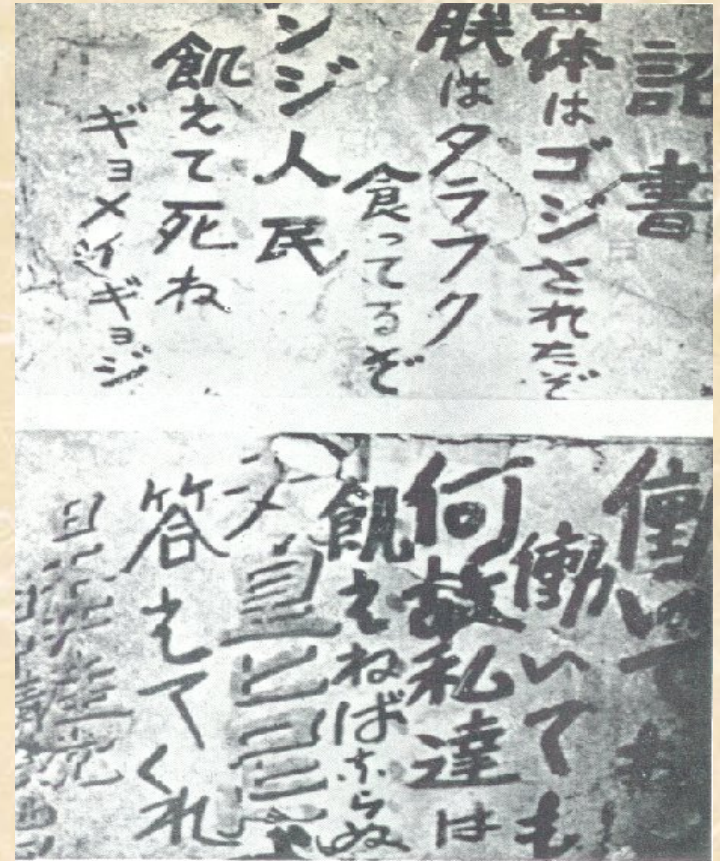 詔書
国体はゴジされたぞ
朕はタラフク
食ってるぞ
ンジ人民
飢えて死ね
ギョメイギョジ
働いても
働いても
何故私達は
飢えねばならぬ
答えてくれ
日本共産党